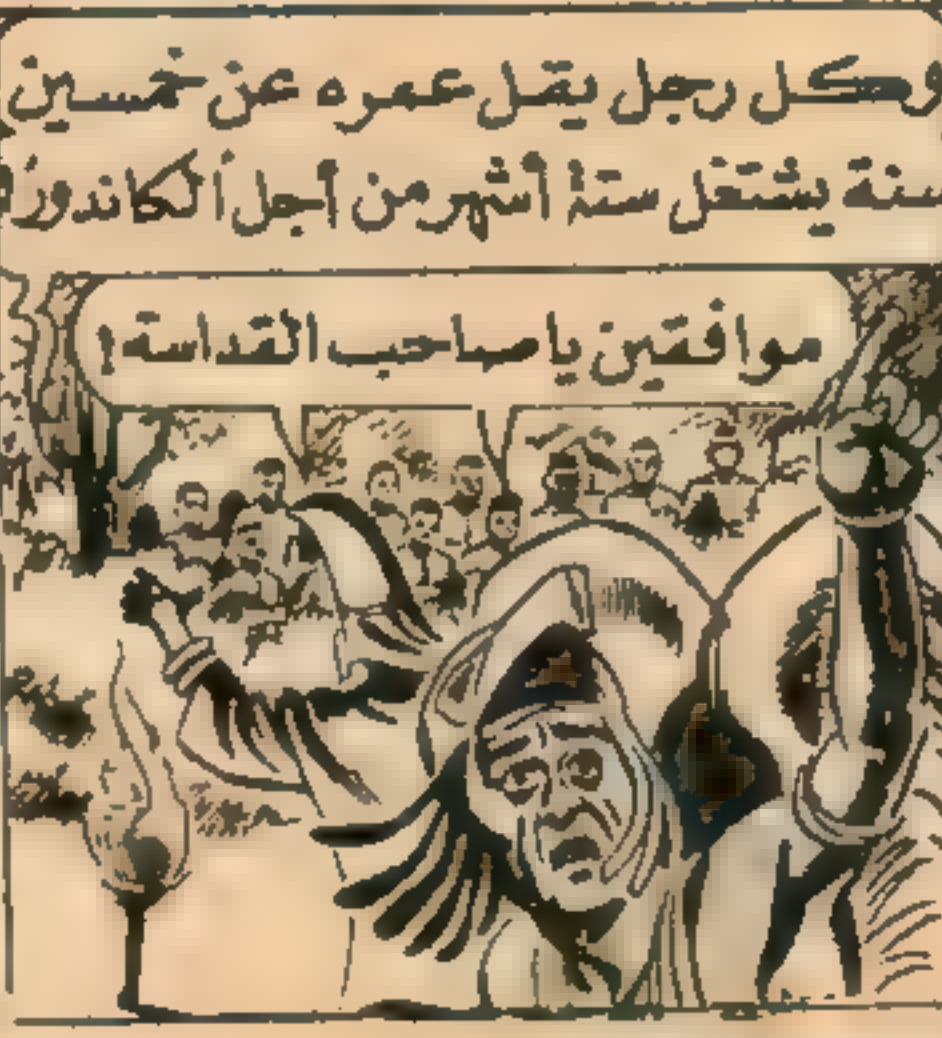 وكل رجل يقل عمره عن خمسين
سنة يشتغل ستة أشهر من أجل الكاندورز
موافقين يا صاحب القداسة!